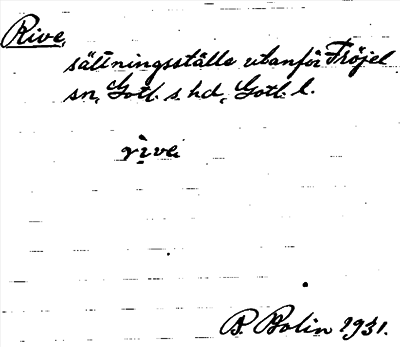 Rive,
sättningsställe utanför Fröjel
sn, Gotl. s. hd, Gotl. l.
rìve
B. Bolin 1931.